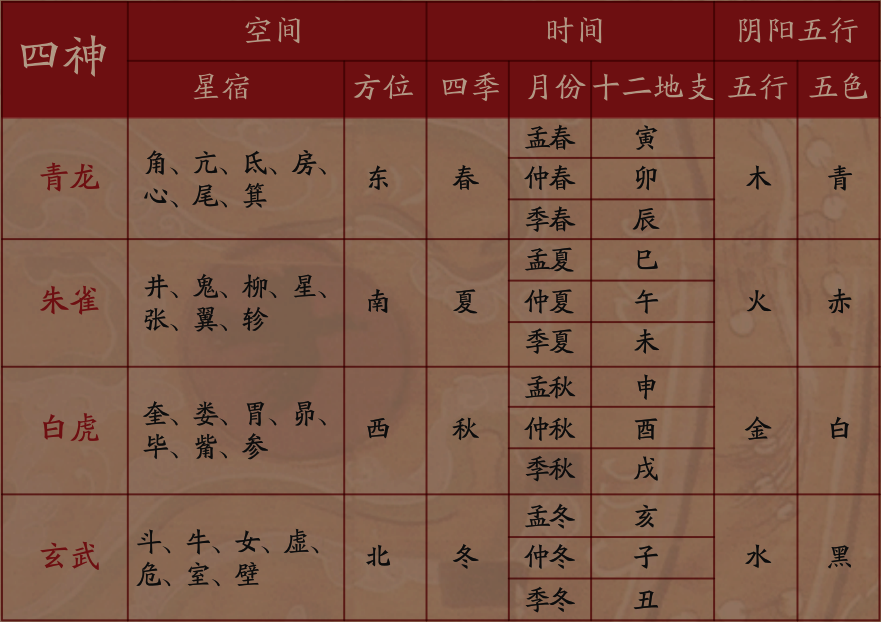 四神
空间
时间
阴阳五行
星宿
方位
四季
月份
十二地支
五行
五色
青龙
角、亢、氐、房、
心、尾、箕
东
春
孟春
寅
仲春
卯
季春
辰
木
青
朱雀
井、鬼、柳、星、
张、翼、轸
南
夏
孟夏
巳
仲夏
午
季夏
未
火
赤
白虎
奎、娄、胃、昴、
毕、觜、参
西
秋
孟秋
申
仲秋
酉
季秋
戌
金
白
玄武
斗、牛、女、虚、
危、室、壁
北
冬
孟冬
亥
仲冬
子
季冬
丑
水
黑